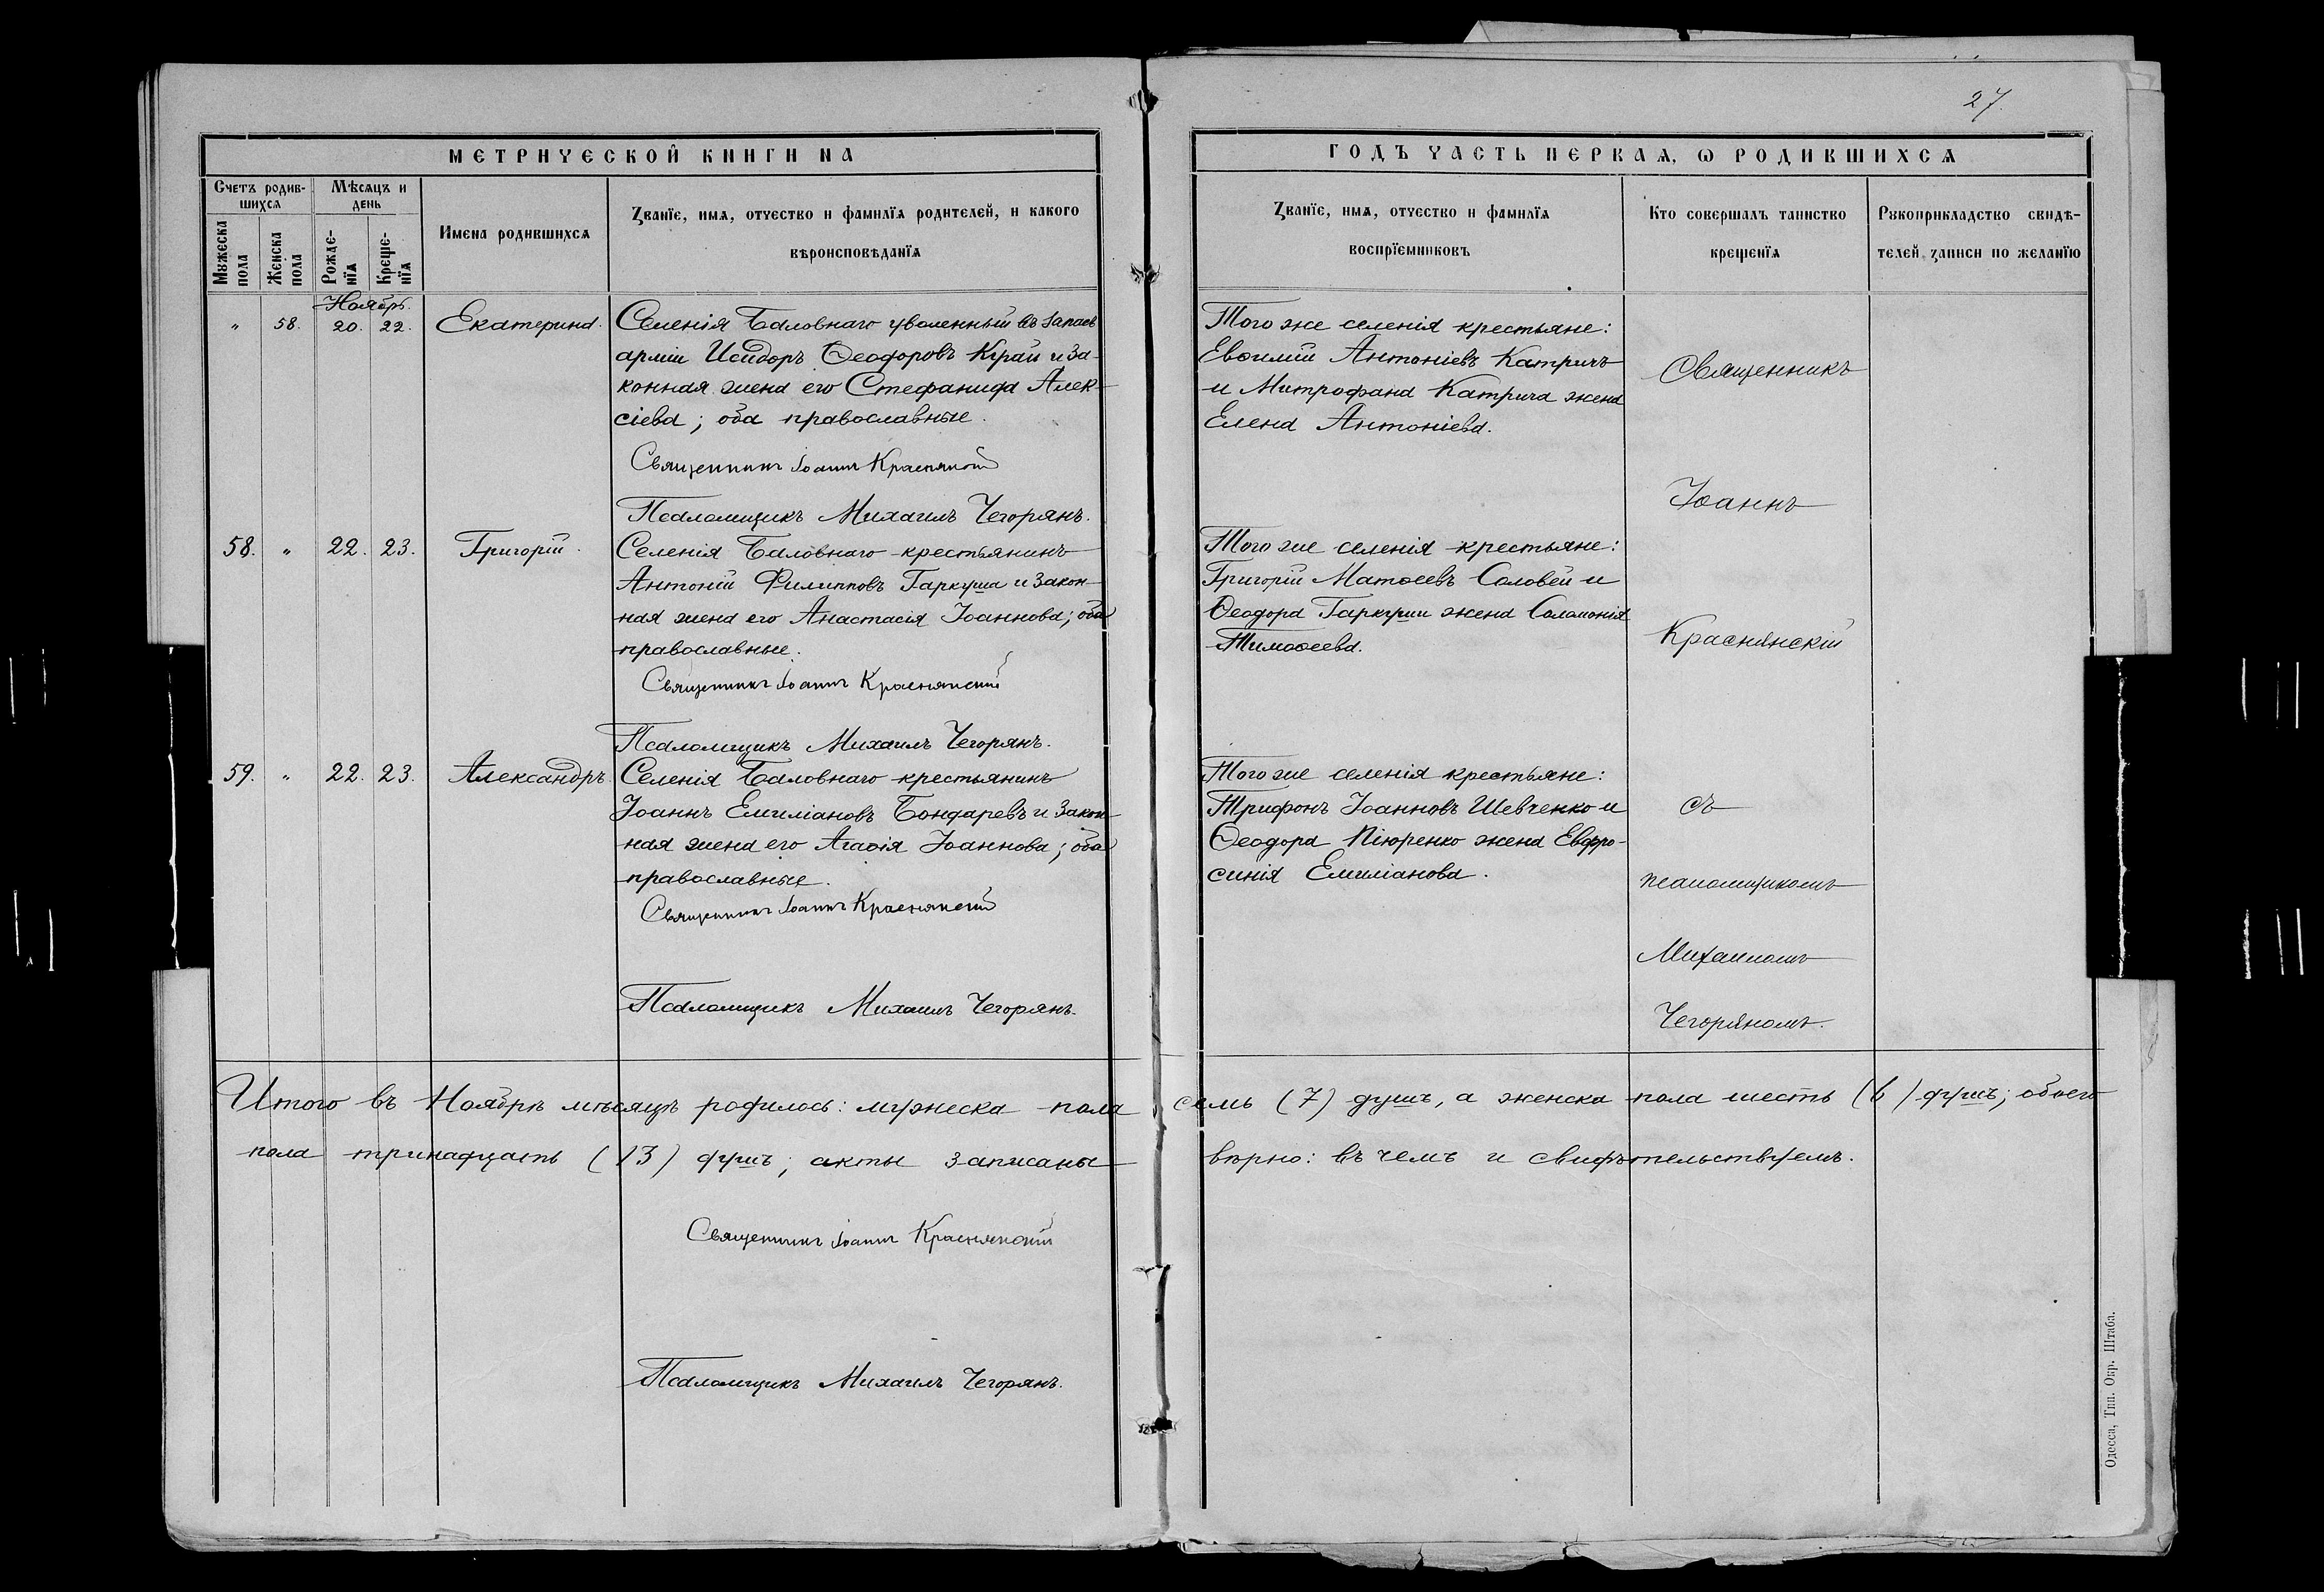 27.
МЕТРИЧЕСКОЙ КНИГИ НА
ГОДЪ ЧАСТЬ ПЕРВАѦ, Ѡ РОДИВШИХСѦ
Счетъ родив-
шихсѧ
Мѣсѧцъ и
день
Мужеска
пола
Женска
пола
Рожде-
нїѧ
Креще-
нїѧ
Имена родившихсѧ
Званїе, имѧ, отчество и фамилїѧ родителей, и какого
вѣроисповѣданїѧ
Званїе, имѧ, отчество и фамилїѧ
воспрїемниковъ
Кто совершалъ таинство
крещенїѧ
Рукоприкладство свидѣ-
телей записи по желанїю
Ноябрь.
" 58. 20. 22. Екатерина.
Селенія Баловнаго уволенный въ запасъ
арміи Исидоръ Ѳеодоровъ Край и за-
конная жена его Стефанида Алек-
сіева; оба православные.
Священникъ Іоаннъ Краснянскій
Псаломщикъ Михаилъ Чегорянъ.
Того же селенія крестьяне:
Евѳимій Антоніевъ Катричъ
и Митрофана Катрича жена
Елена Антоніева.
58. " 22. 23. Григорій.
Селенія Баловнаго крестьянинъ
Антоній Филипповъ Гаркуша и закон-
ная жена его Анастасія Іоаннова; оба
православные.
Священникъ Іоаннъ Краснянскій
Псаломщикъ Михаилъ Чегорянъ.
Того же селенія крестьяне:
Григорій Матѳеевъ Соловей и
Ѳеодора Гаркуши жена Соломонія
Тимоѳеева.
59. " 22. 23. Александръ.
Селенія Баловнаго крестьянинъ
Іоаннъ Емиліановъ Бондаревъ и закон-
ная жена его Агаѳія Іоаннова; оба
православные.
Священникъ Іоаннъ Краснянскій
Псаломщикъ Михаилъ Чегорянъ.
Того же селенія крестьяне:
Трифонъ Іоанновъ Шевченко и
Ѳеодора Піюренко жена Евфро-
синія Емиліанова.
Священникъ
Іоаннъ
Краснянскій
съ
псаломщикомъ
Михаиломъ
Чегоряномъ.
Итого въ Ноябрѣ мѣсяцѣ родилось: мужеска пола семь (7) душъ, а женска пола шесть (6) душъ; обоего
пола тринадцать (13) душъ; акты записаны вѣрно: въ чемъ и свидѣтельствуемъ.
Священникъ Іоаннъ Краснянскій
Псаломщикъ Михаилъ Чегорянъ.
Одесса, Тип. Окр. Штаба.